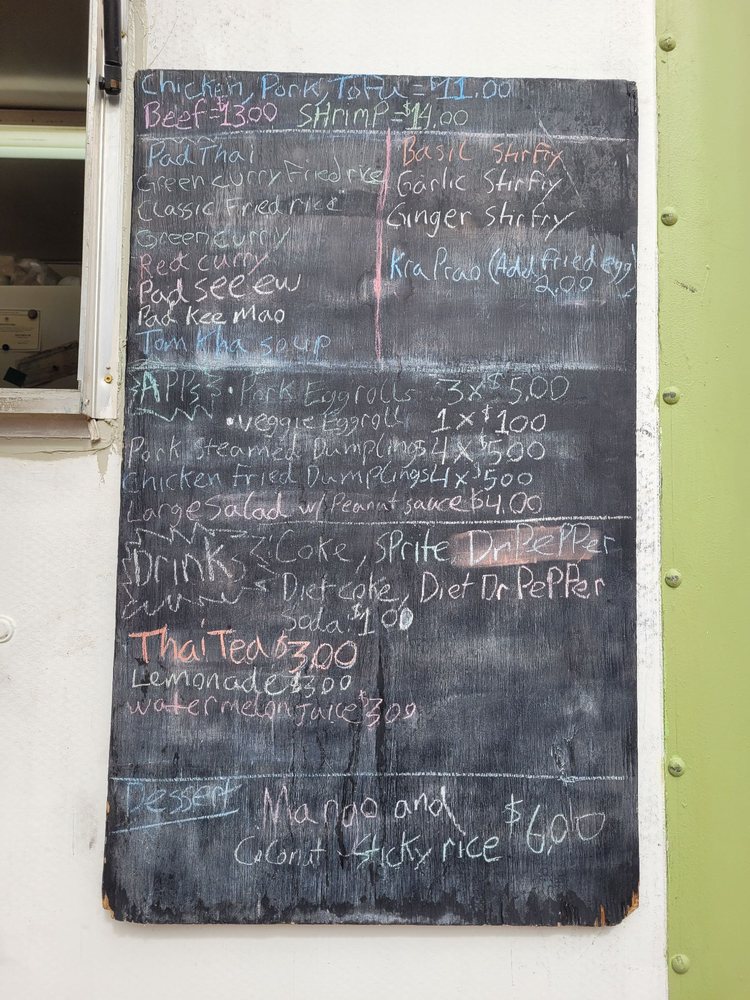 Chicken, Pork, Tofu = $11.00
Beef = $13.00 SHrimp = $14.00
Pad Thai
Green curry Fried rice
Classic Fried rice
Green curry
Red curry
Pad see ew
Pad kee Mao
Tom Kha soup
Basil Stirfry
Garlic Stirfry
Ginger Stirfry
Kra Prao (Add fried egg)
2.00
APPS • Pork Eggrolls 3x$5.00
• veggie Eggroll 1x$1.00
Pork Steamed Dumplings 4x$5.00
Chicken Fried Dumplings 4x$5.00
Large Salad w/ Peanut sauce $4.00
Drink Coke, Sprite Dr PePPer
Diet coke, Diet Dr PePPer
Soda: $1.00
Thai Tea $3.00
Lemonade $3.00
watermelon juice $3.00
Dessert Mango and $6.00
Coconut Sticky rice